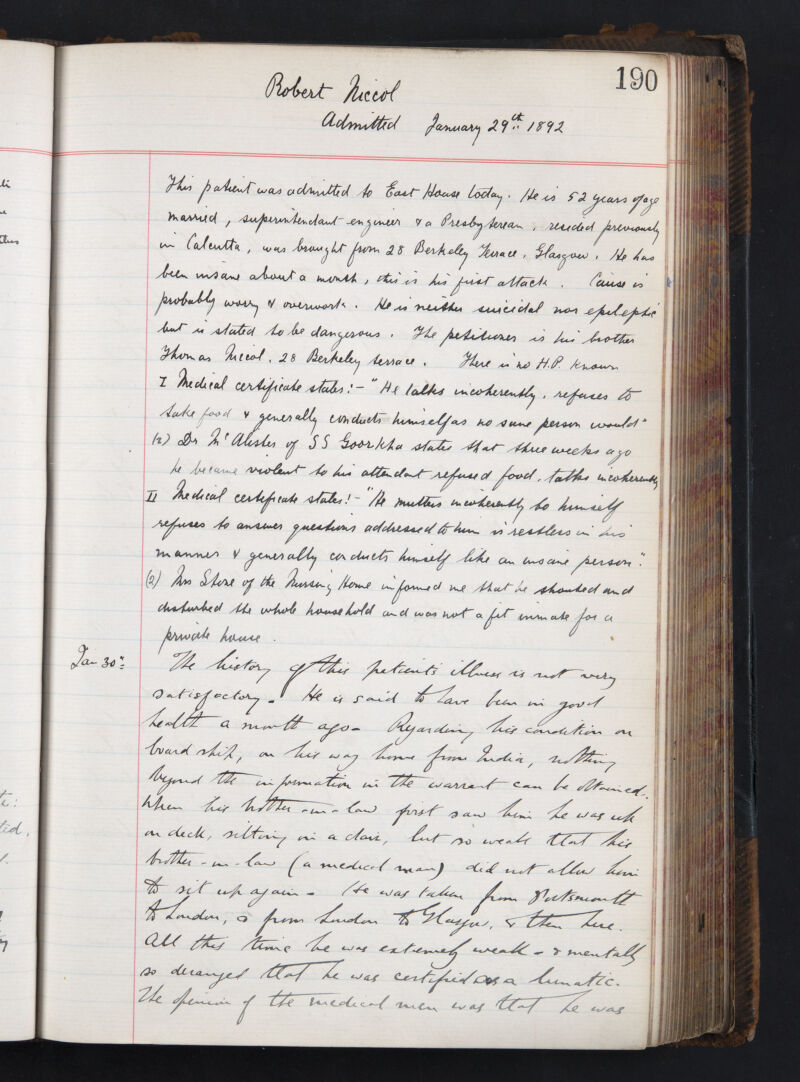 190
Robert Niccol
Admitted January 29th 1892
This patient was admitted to East House today. He is 52 years of age
married, superintendant engineer & a Presbyterean, resided previously
in Calcutta, was brought from 28 Berkeley Terrace, Glasgow. He has
been insane about a month, this is his first attack. Cause is
probably worry & overwork. He is neither suicidal nor epileptic
but is stated to be dangerous. The petitioner is his brother
Thomas Niccol, 28 Berkeley terrace. There is no H.P. known
I Medical certificate states:- "He talks incoherently, refuses to
take food & generally conducts himself as no sane person would"
(2) Dr McAlister of SS Goorkha states that three weeks ago
he became violent to his attendant refused food, talks incoherently
II Medical certificate states:- "He mutters incoherently to himself
refuses to answer questions addressed to him is restless in his
manner & generally conducts himself like an insane person".
(2) Mrs Stone of the Nursing Home informed me that he shouted and
disturbed the whole household and was not a fit inmate for a
private house.
Jan 30th
The history of this patient's illness is not very
satisfactory. He is said to have been in good
health a month ago. Regarding his condition on
board ship, on his way home from India, nothing
beyond the information in the warrant can be obtained.
When his brother-in-law first saw him he was up
on deck, sitting in a chair, but so weak that his
brother-in-law (a medical man) did not allow him
to sit up again. He was taken from Portsmouth
to London, & from London to Glasgow, & then here.
All this time he was extremely weak - & mentally
so deranged that he was certified as a lunatic.
The opinion of the medical men was that he was